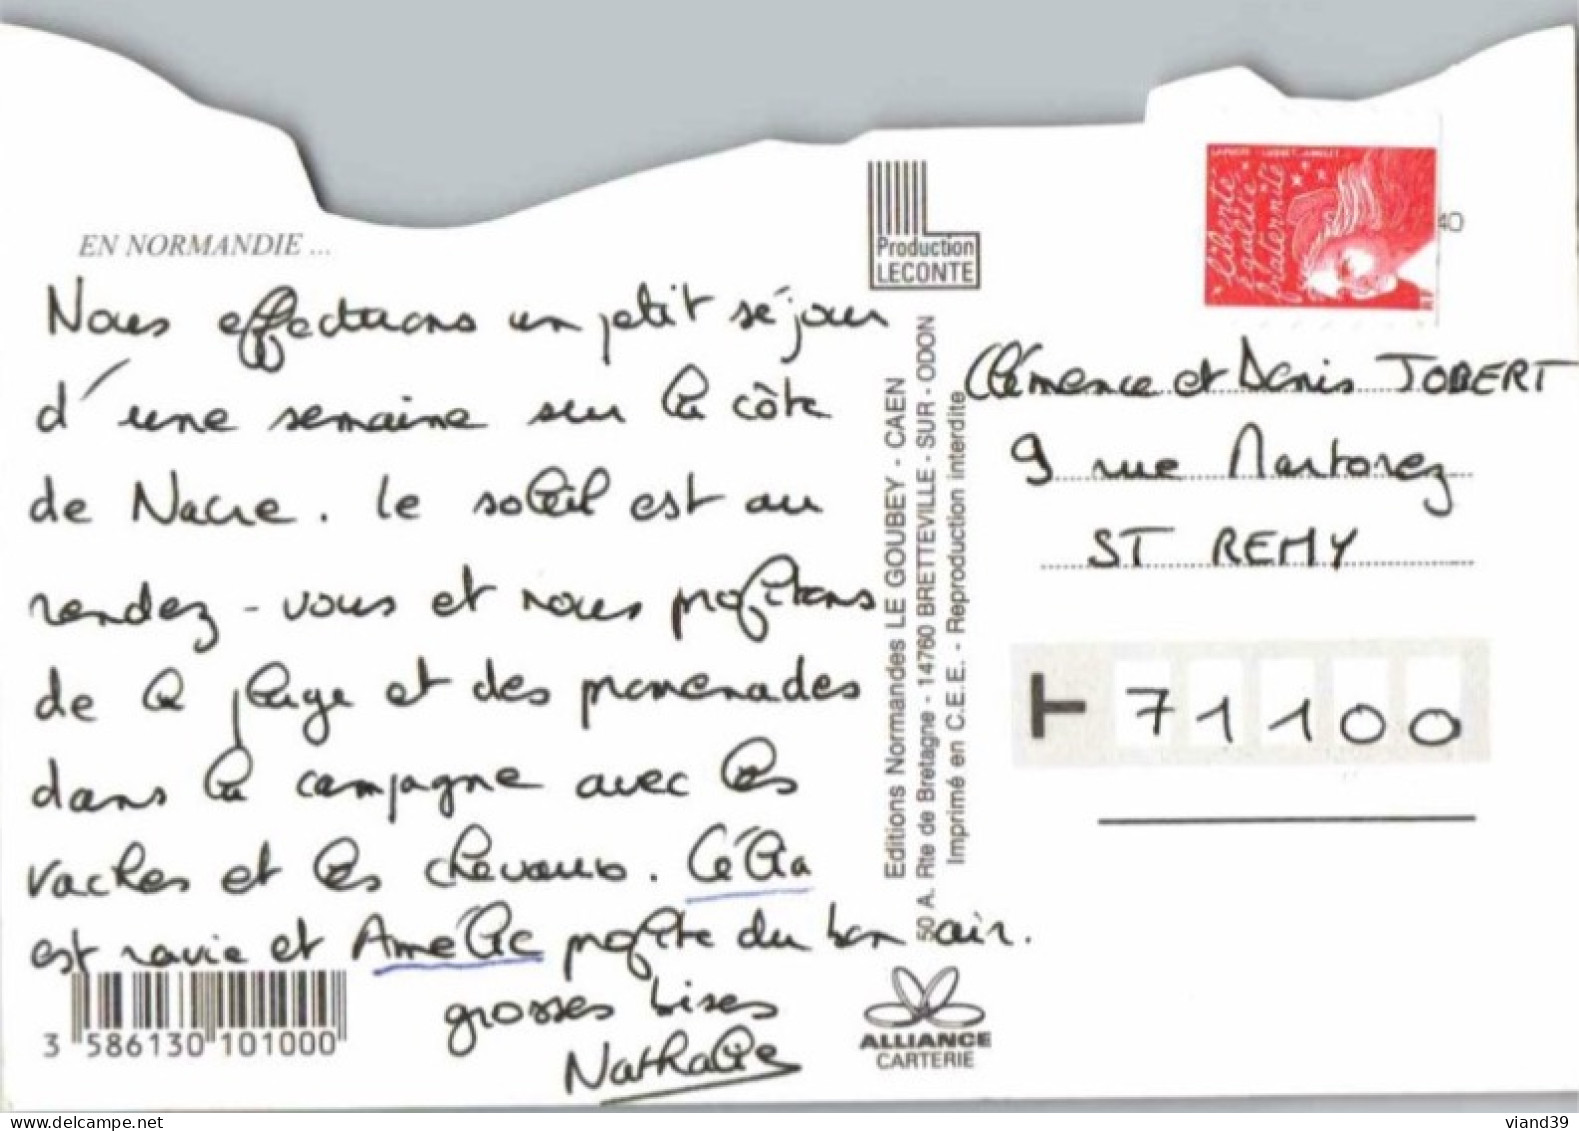 EN NORMANDIE ...
Nous effectuons un petit séjour
d'une semaine sur la côte
de Nacre. le soleil est au
rendez-vous et nous profitons
de la plage et des promenades
dans la campagne avec les
vaches et les chevaux. Célia
est ravie et Amélie profite du bon air.
grosses bises
Nathalie
3 586130 101000
Production
LECONTE
Editions Normandes LE GOUBEY - CAEN
50 A. Rte de Bretagne - 14760 BRETTEVILLE - SUR - ODON
Imprimé en C.E.E. - Reproduction interdite
ALLIANCE
CARTERIE
Liberté
égalité
fraternité
RF
40
Clémence et Denis JOBERT
9 rue Martorez
ST REMY
71100
www.delcampe.net
viand39